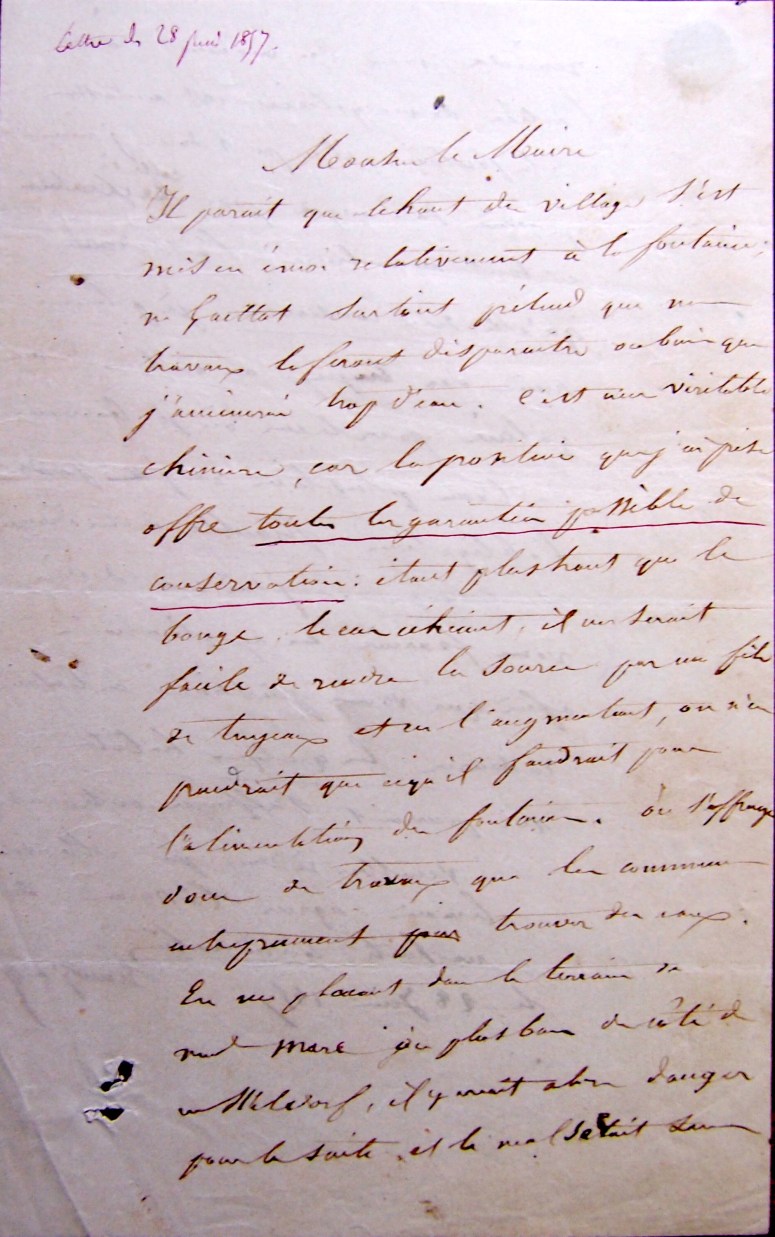 Lettre du 28 juin 1857.
Monsieur le Maire
Il parait que le haut du village s'est
mis en émoi relativement à la fontaine;
surtout prétend que
travaux la feront disparaitre ou bien que
j'amènerai trop d'eau. c'est une véritable
chimère, car la position que j'ai prise
offre toutes les garanties possible de
conservation: étant plus haut que la
bouge le cas échéant, il me serait
facile de rendre la source par un filet
de tuyaux et en l'augmentant, on n'en
prendrait que ce qu'il faudrait pour
l'alimentation des fontaines. on s'effraye
donc de travaux que les communes
entreprennent pour trouver des eaux.
En me plaçant dans le terrain de
mad Marc ou plus bas du côté de
, il y avait alors danger
pour la suite, et le mal serait sans